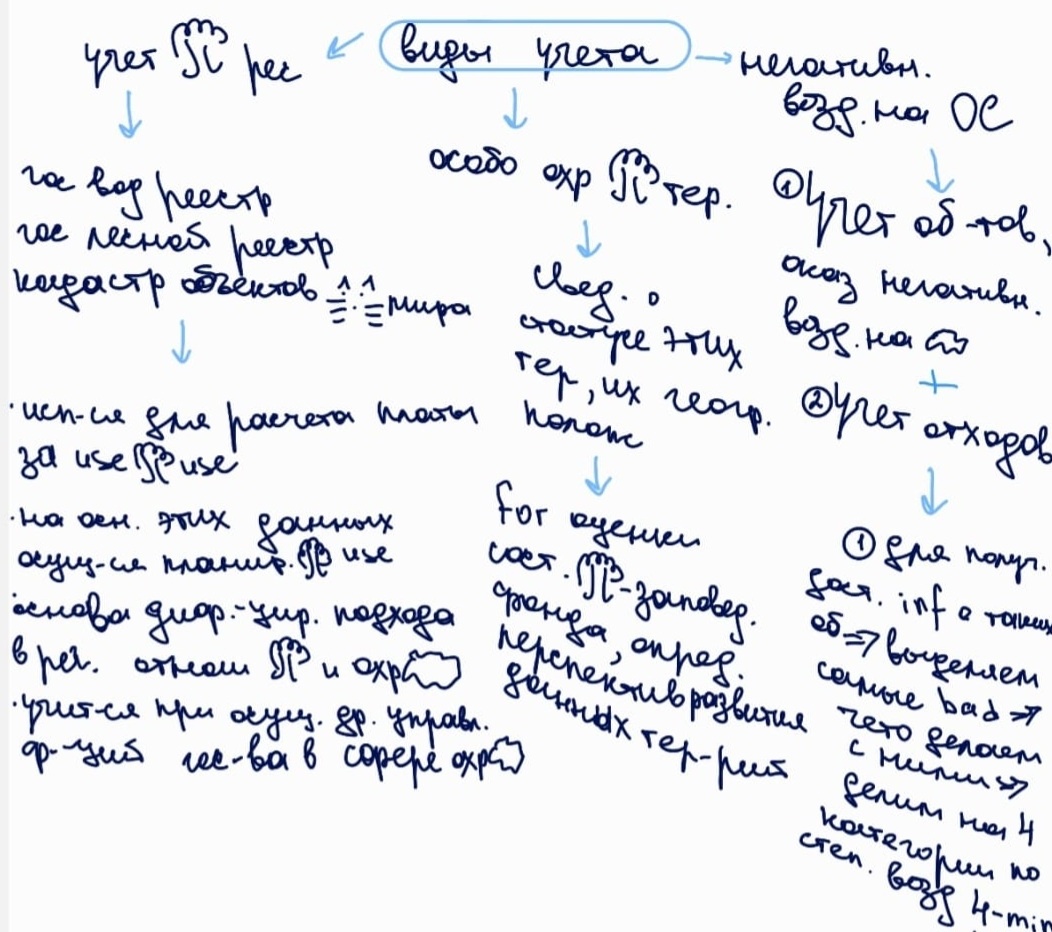 виды учета
учет рес
гос вод реестр
гос лесной реестр
кадастр объектов мира
·исп-ся для расчета платы
за use use
·на осн. этих данных
осущ-ся планир. use
·основа диф.-цир. подхода
в рег. отнош и охр
·учит-ся при осущ. др. управл.
ф-ций гос-ва в сфере охр
особо охр тер.
свед. о
статусе этих
тер, их геогр.
полож
for оценки
сост. -заповед.
фонда, опред.
перспектив развития
данных тер-рий
негативн.
возд. на ОС
① Учет об-тов,
оказ негативн.
возд. на
+
② Учет отходов
① для получ.
дост. inf о таких
об ⇒ выделяем
самые bad ⇒
чето делаем
с ними ⇒
делим на 4
категории по
степ. возд 4-min